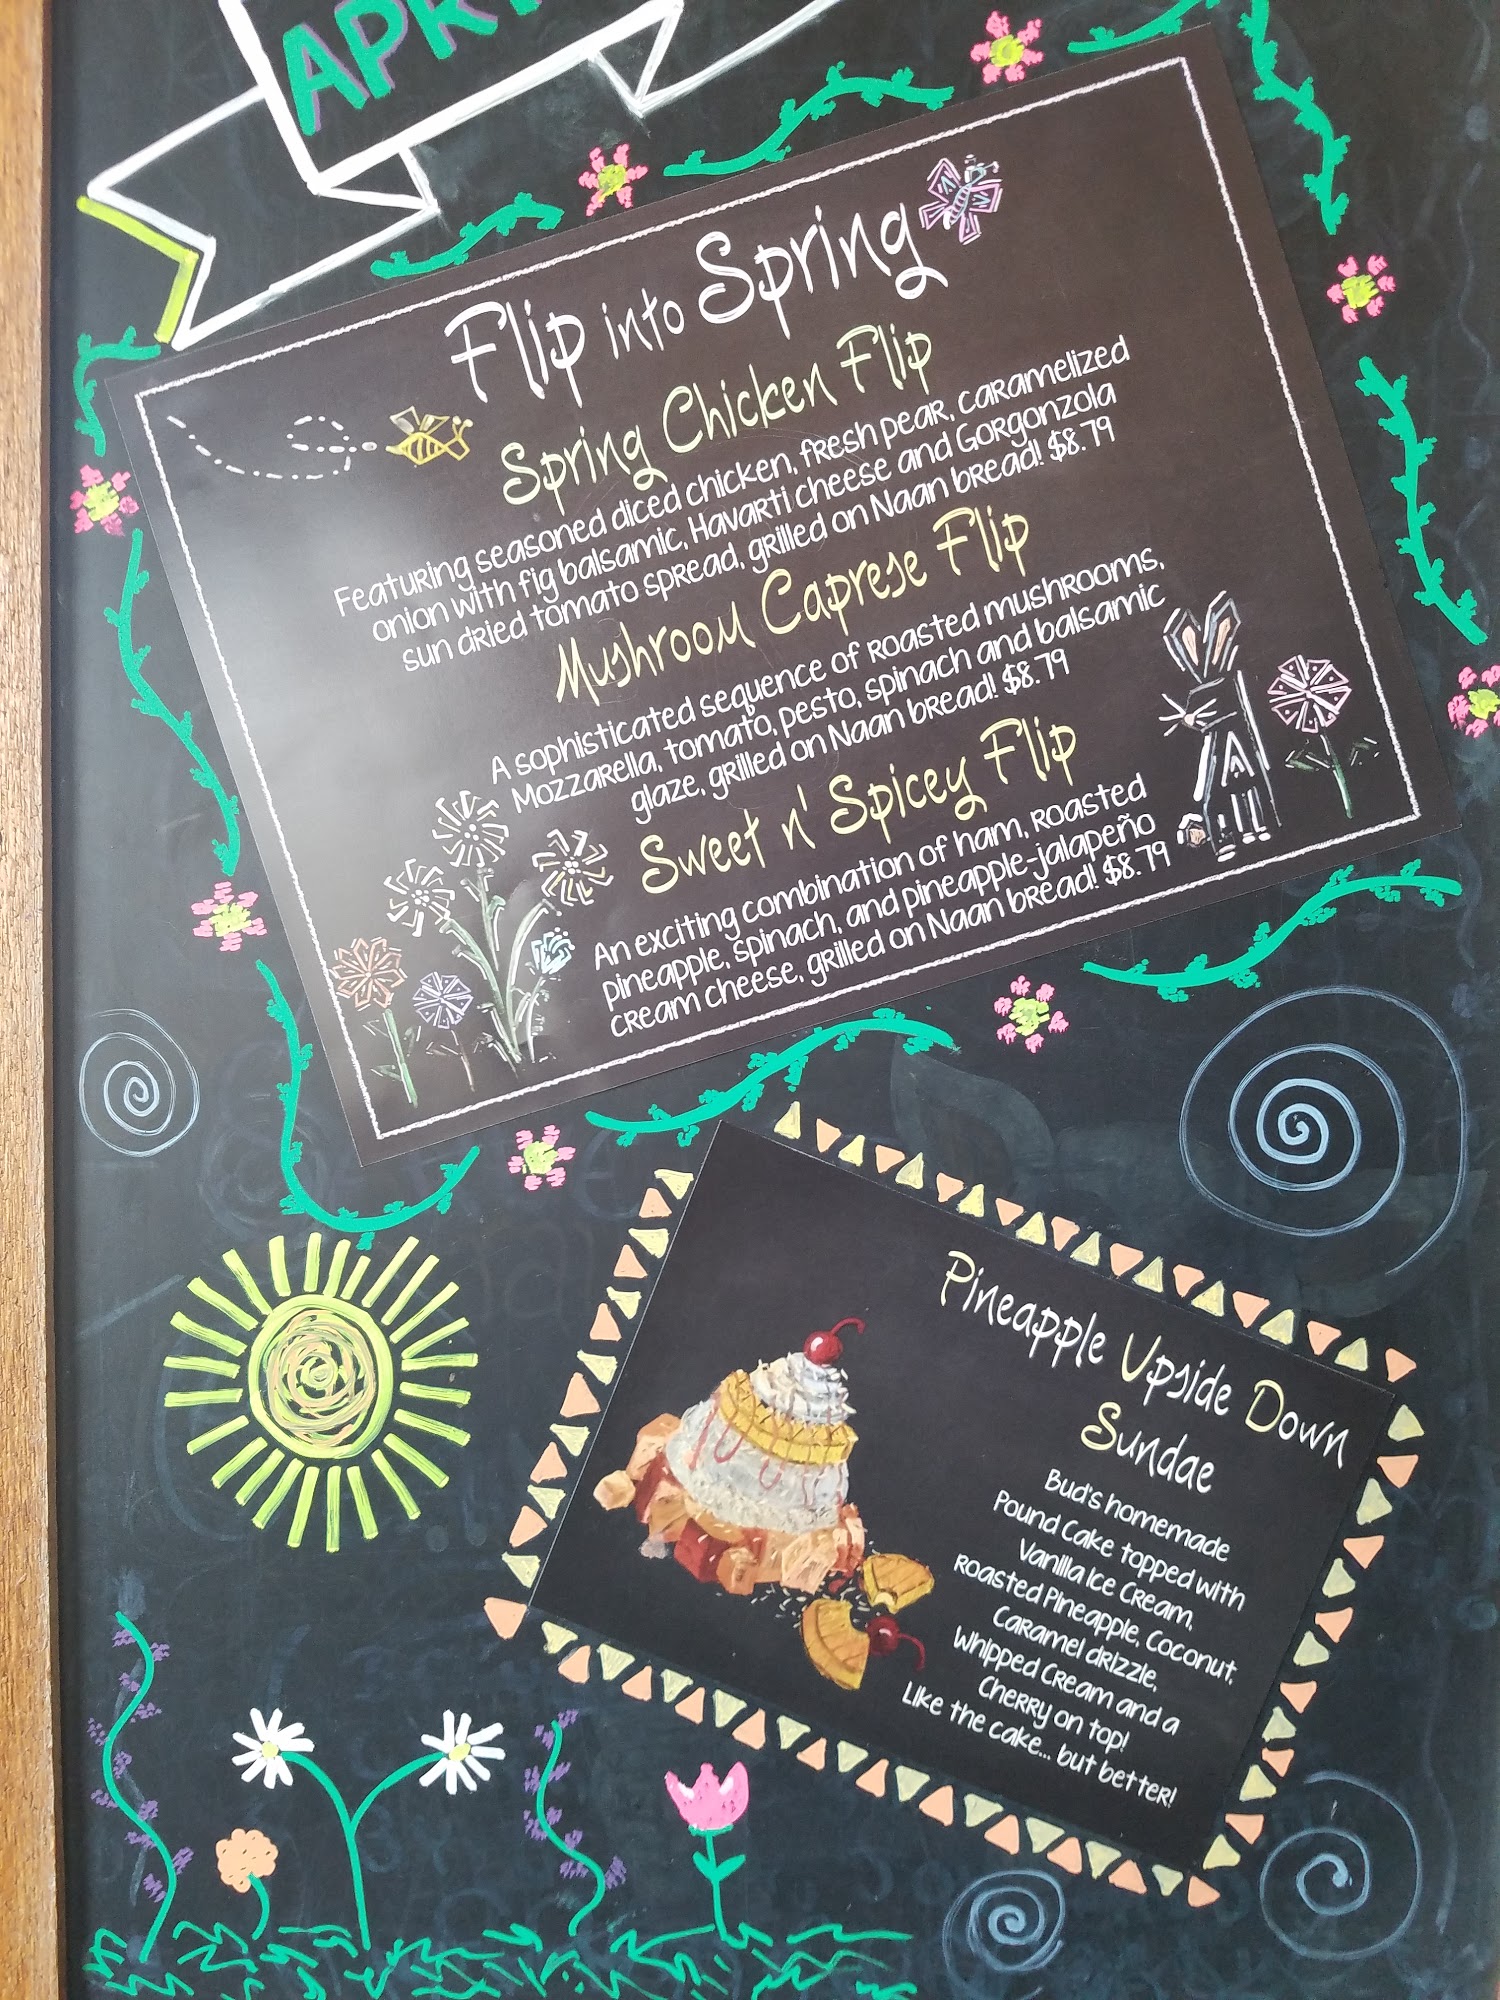 Flip into Spring
Spring Chicken Flip
Featuring seasoned diced chicken, fresh pear, caramelized
onion with fig balsamic, Havarti cheese and Gorgonzola
sun dried tomato spread, grilled on Naan bread! $8.79
Mushroom Caprese Flip
A sophisticated sequence of roasted mushrooms,
Mozzarella, tomato, pesto, spinach and balsamic
glaze, grilled on Naan bread! $8.79
Sweet n' Spicey Flip
An exciting combination of ham, roasted
pineapple, spinach, and pineapple-jalapeño
cream cheese, grilled on Naan bread! $8.79
Pineapple Upside Down
Sundae
Bud's homemade
Pound Cake topped with
Vanilla Ice Cream,
roasted Pineapple, Coconut,
Caramel drizzle,
Whipped Cream and a
Cherry on top!
Like the cake... but better!